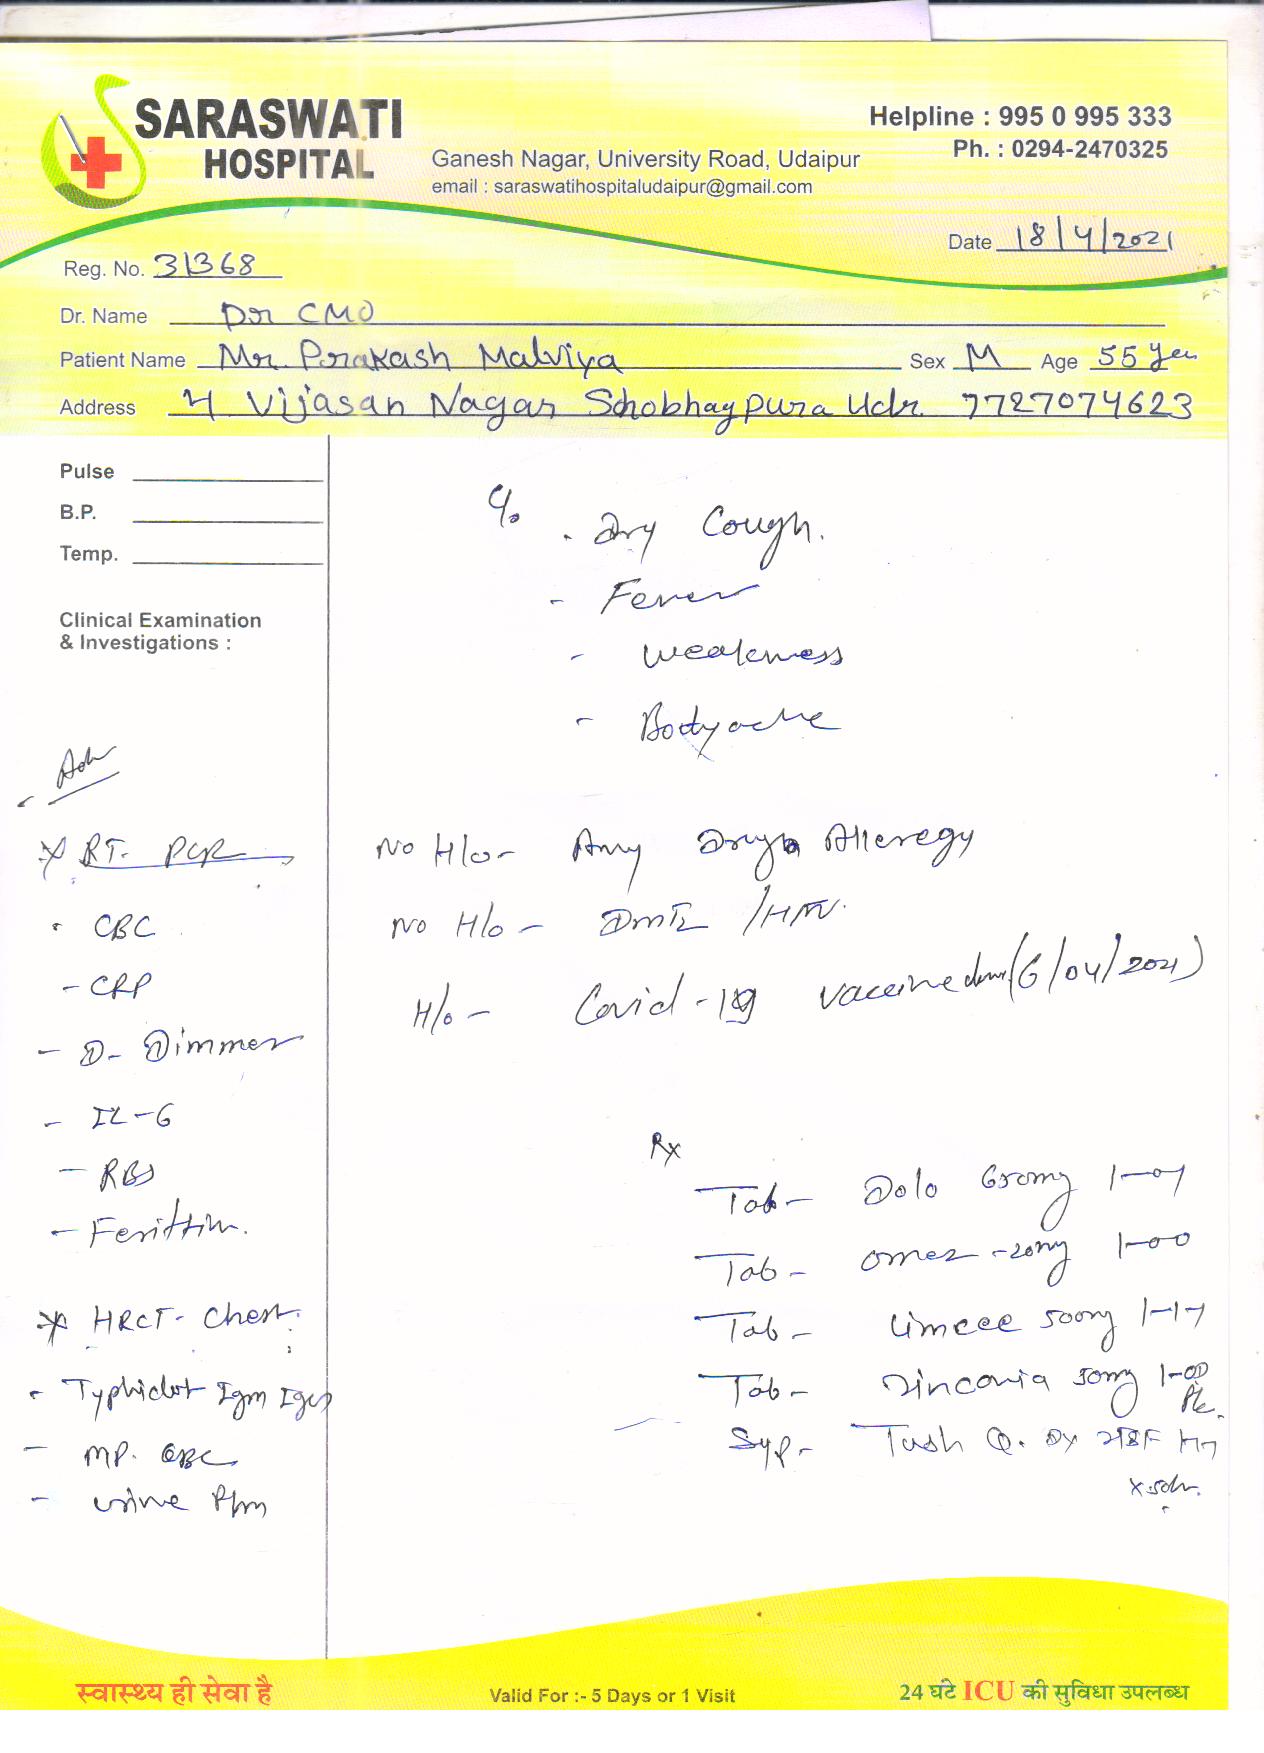 SARASWATI
HOSPITAL
Ganesh Nagar, University Road, Udaipur
email : saraswatihospitaludaipur@gmail.com
Helpline : 995 0 995 333
Ph. : 0294-2470325
Date 18/4/2021
Reg. No. 31368
Dr. Name Dr CMO
Patient Name Mr. Prakash Malviya Sex M Age 55 Yea
Address 4 Vijasan Nagar Shobhagpura Udr. 7727074623
Pulse
B.P.
Temp.
Clinical Examination
& Investigations :
C/o
. Dry Cough.
- Fever
- Weakness
- Bodyache
- Adv
* RT- PCR
. CBC
- CRP
- D- Dimmer
- IL-6
- RBS
- Ferittin.
* HRCT- Chest.
- Typhidot Igm Igg
- MP. QBC
- Urine
No H/o- Any Drug Alleregy
No H/o - /HTN.
H/o - Covid -19 vaccine done (6/04/2021)
Rx
Tab- Dolo 650mg 1-01
Tab- Omez -20mg 1-00
Tab- Limcee 500mg 1-1-1
Tab- Zinconia 50mg 1-00
Syp- Tush Q. D x
स्वास्थ्य ही सेवा है
Valid For :- 5 Days or 1 Visit
24 घंटे ICU की सुविधा उपलब्ध